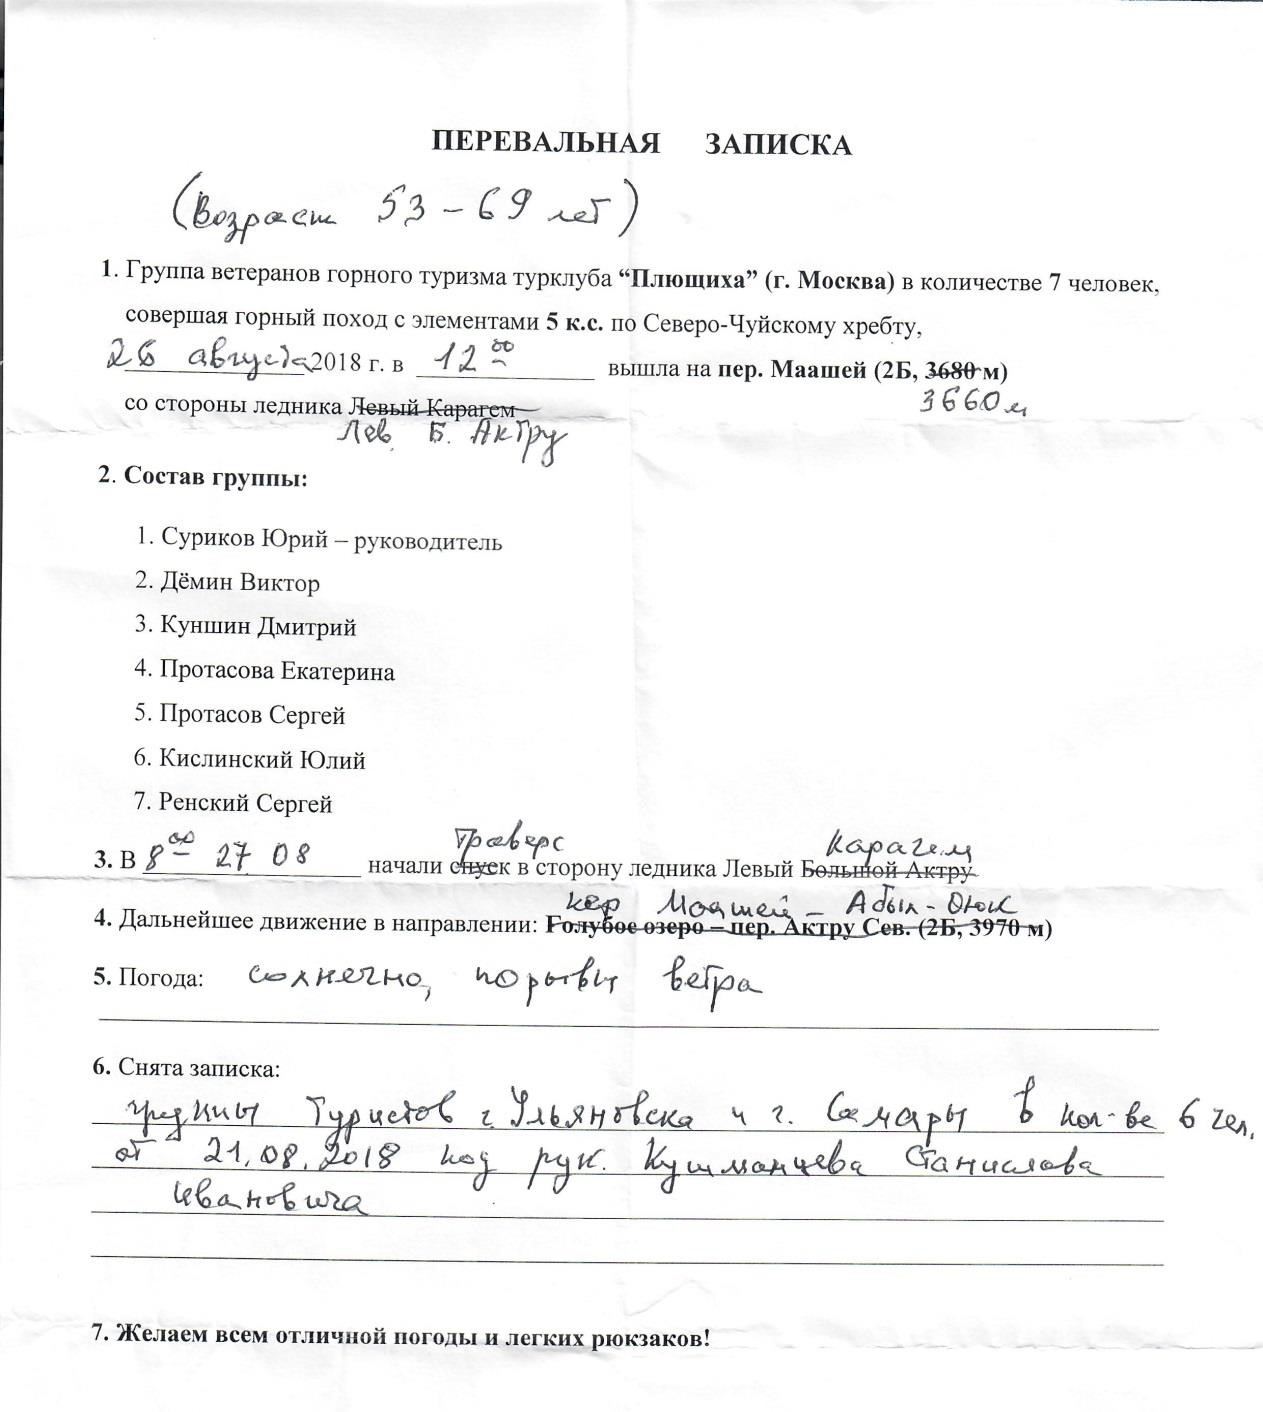 ПЕРЕВАЛЬНАЯ ЗАПИСКА
(Возраст 53 – 69 лет)
1. Группа ветеранов горного туризма турклуба “Плющиха” (г. Москва) в количестве 7 человек,
совершая горный поход с элементами 5 к.с. по Северо-Чуйскому хребту,
26 августа 2018 г. в 12 00 вышла на пер. Маашей (2Б, 3680 м)
3660 м
со стороны ледника Левый Карагем
Лев. Б. Актру
2. Состав группы:
1. Суриков Юрий – руководитель
2. Дёмин Виктор
3. Куншин Дмитрий
4. Протасова Екатерина
5. Протасов Сергей
6. Кислинский Юлий
7. Ренский Сергей
Траверс Карагем
3. В 8 00 27 08 начали спуск в сторону ледника Левый Большой Актру
пер Маашей – Абыл-Оюк
4. Дальнейшее движение в направлении: Голубое озеро – пер. Актру Сев. (2Б, 3970 м)
5. Погода: солнечно, порывы ветра
6. Снята записка:
группы туристов г. Ульяновска и г. Самары в кол-ве 6 чел.
от 21.08.2018 под рук. Кушманцева Станислава
Ивановича
7. Желаем всем отличной погоды и легких рюкзаков!